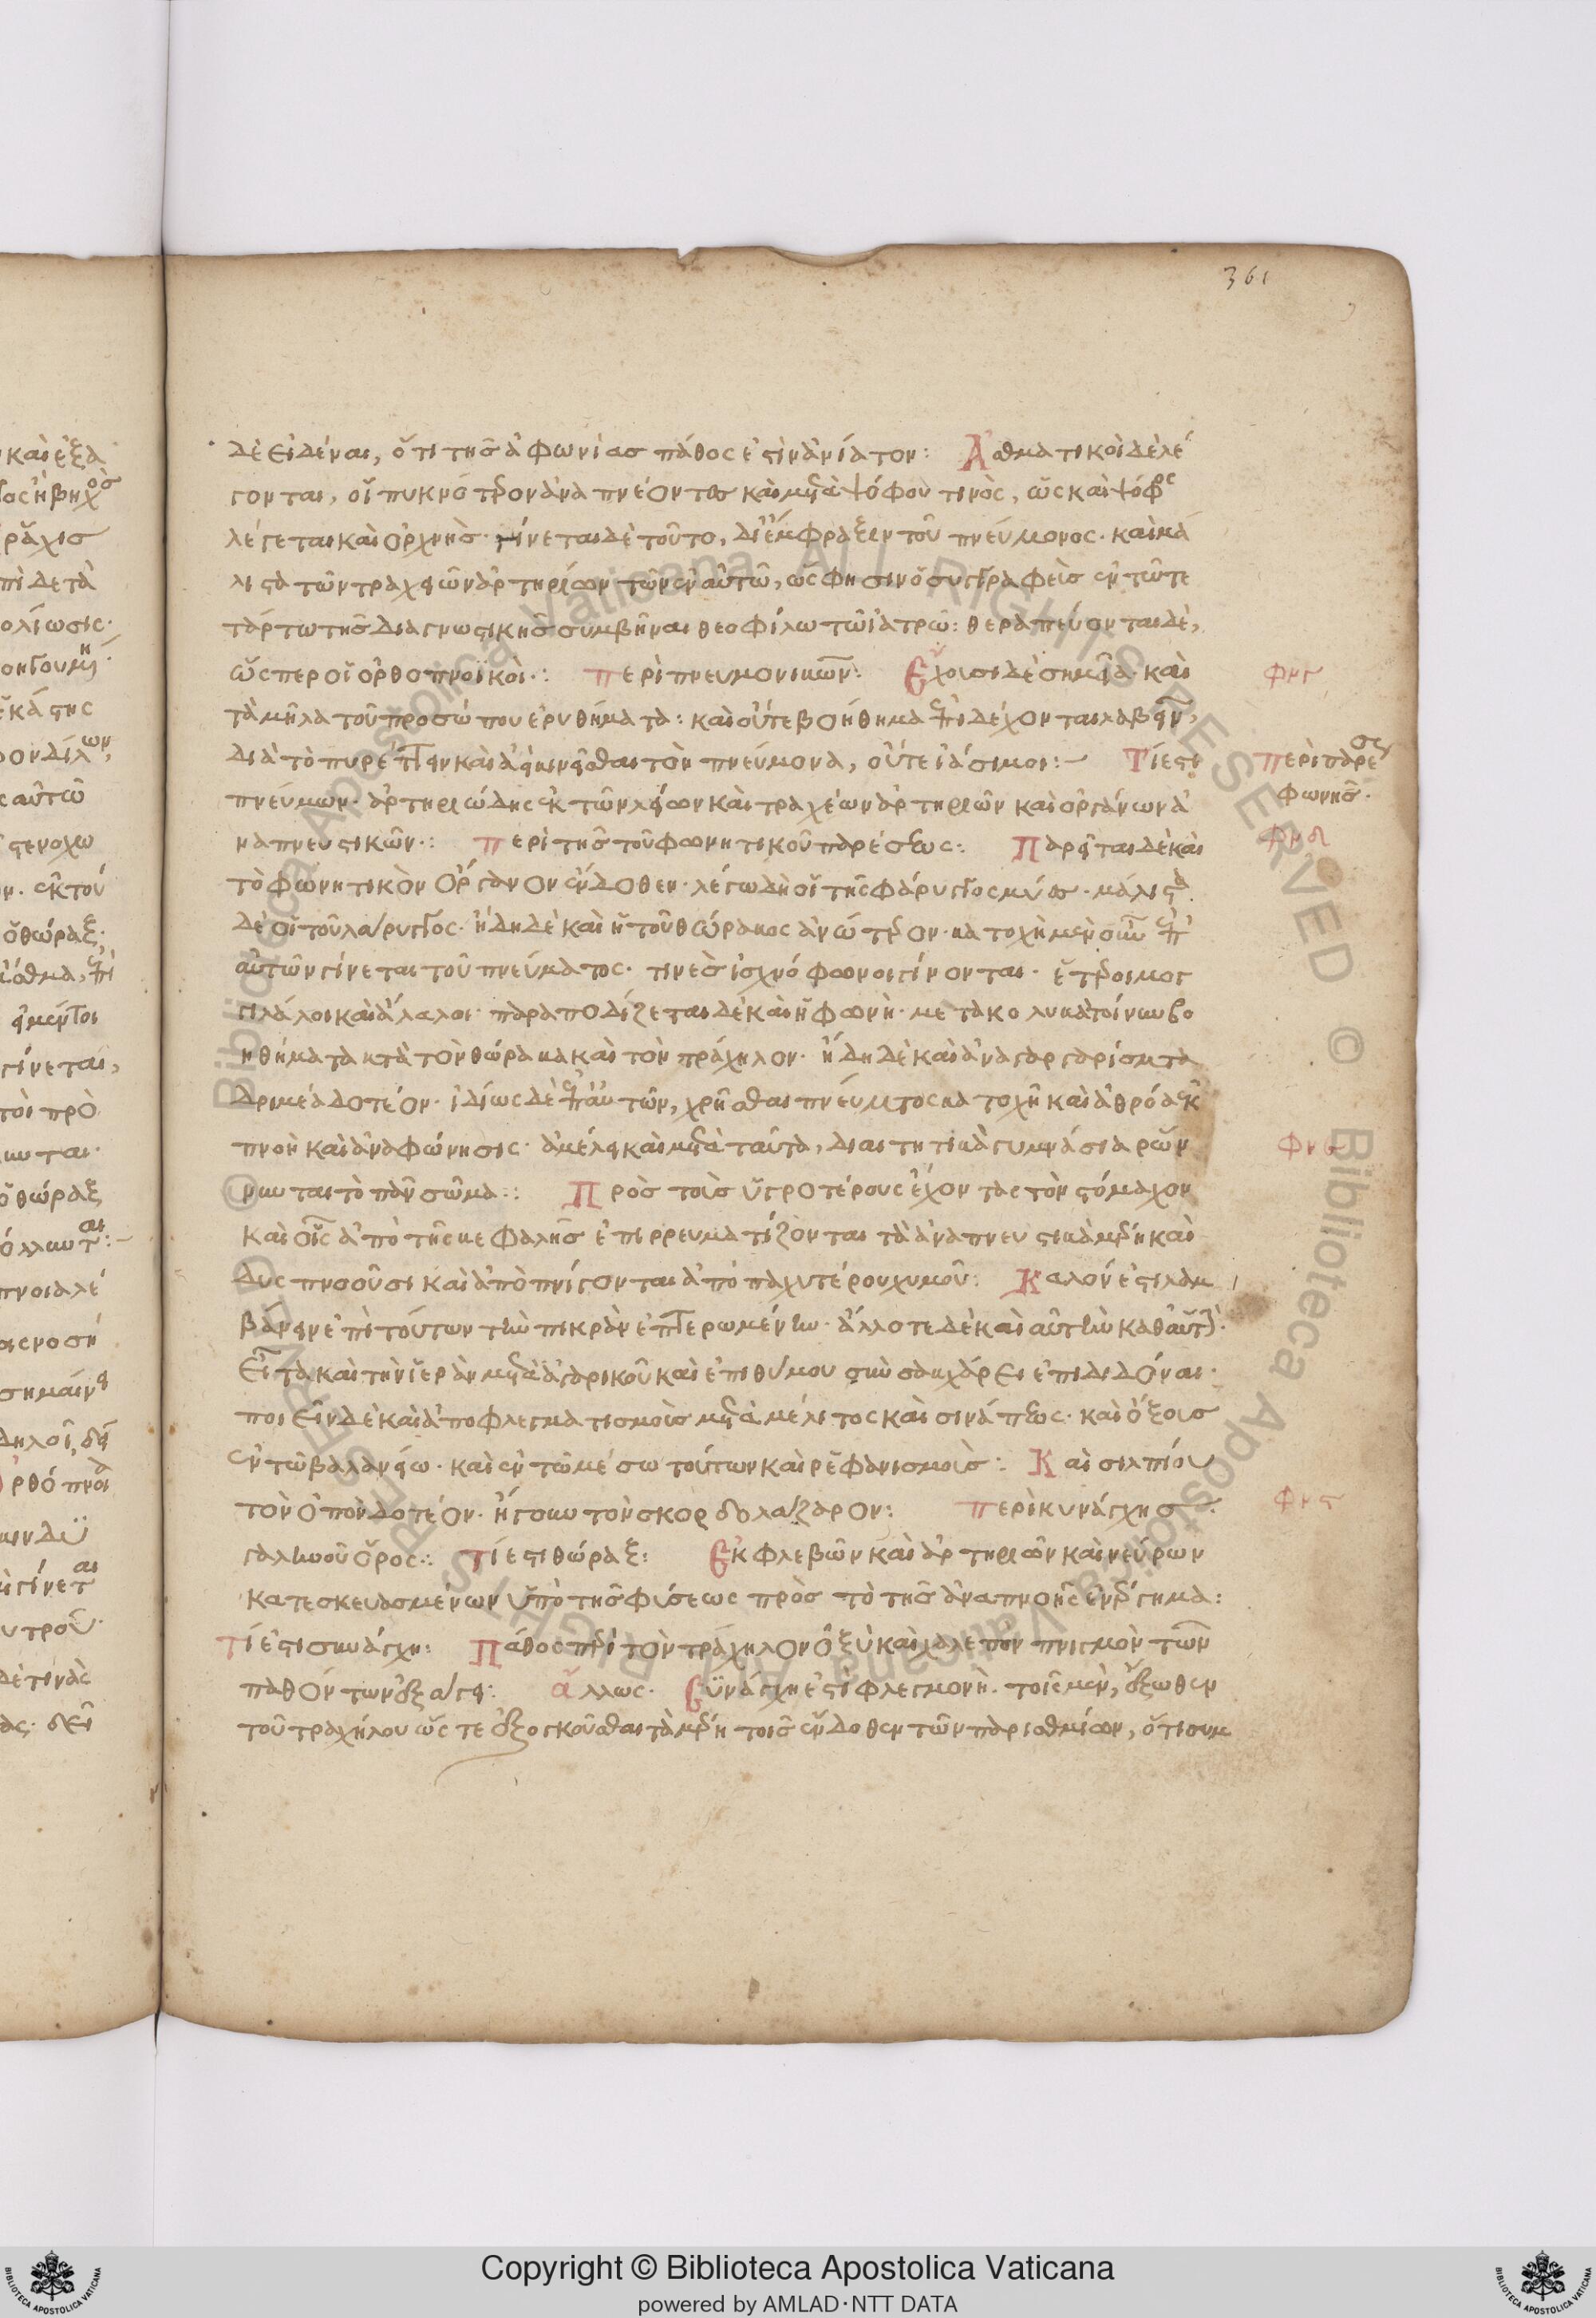 361
δὲ εἰδέναι, ὅτι τῆς ἀφωνίας πάθος ἐστὶν ἀνίατον: Ἀσθματικοὶ δὲ λέ
γονται, οἱ πυκνότερον ἀναπνέοντες καὶ μετὰ ψόφου τινὸς, ὡς καὶ ψόφος
λέγεται καὶ ὀρχνης· γίνεται δὲ τοῦτο, δι' ἔμφραξιν τοῦ πνεύμονος· καὶ μά
λιστα τῶν τραχειῶν ἀρτηριῶν τῶν ἐν αὐτῶ, ὥς φησιν ὁ συγγραφεὶς ἐν τῶ τε
τάρτω τῆς διαγνωστικῆς συμβῆναι θεοφίλω τῶ ἰατρῶ: θεραπεύονται δὲ,
ὥσπερ οἱ ὀρθοπνοϊκοὶ·: περὶ πνευμονικῶν: Ἔχουσι δὲ σημεῖα· καὶ
τὰ μῆλα τοῦ προσώπου ἐρυθήματα: καὶ οὔτε βοήθημα ἐπιδέχονται λαβεῖν,
διὰ τὸ πυρέττειν καὶ ἀεικινεῖσθαι τὸν πνεύμονα, οὔτε ἰάσιμοι:– Τί ἐστι
πνεύμων· ἀρτηριώδης ἐκ τῶν λείων καὶ τραχέων ἀρτηριῶν καὶ ὀργάνων ἀ
ναπνευστικῶν·: περὶ τῆς τοῦ φωνητικοῦ παρέσεως: Παρεῖται δὲ καὶ
τὸ φωνητικὸν ὄργανον ἔνδοθεν· λέγω δὴ οἱ τῆς φάρυγγος μύες· μάλιστα
δὲ οἱ τοῦ λάρυγγος· ἤδη δὲ καὶ ἡ τοῦ θώρακος ἀνώτερον· κατοχὴ μὲν οὖν ἐπ'
αὐτῶν γίνεται τοῦ πνεύματος· τινὲς ἰσχνόφωνοι γίνονται· ἕτεροι μογ
γιλάλοι καὶ ἄλαλοι· παραποδίζεται δὲ καὶ ἡ φωνὴ· μετακολυκὰ τοίνυν βο
ηθήματα κατὰ τὸν θώρακα καὶ τὸν τράχηλον· ἤδη δὲ καὶ ἀναγαργαρίσματα
δριμέα δοτέον· ἰδίως δὲ ἐπ' αὐτῶν, χρῆσθαι πνεύματος κατοχῆ καὶ ἀθρόα ἐκ
πνοὴ καὶ ἀναφώνησις· ἀμέλει καὶ μετὰ ταῦτα, διαιτητικὰ γυμνάσια ῥών
νυται τὸ πᾶν σῶμα:: Πρὸς τοὺς ὑγροτέρους ἔχοντας τὸν στόμαχον
καὶ οἷς ἀπὸ τῆς κεφαλῆς ἐπιρρευματίζονται τὰ ἀναπνευστικὰ μέρη καὶ
δυσπνοοῦσι καὶ ἀποπνίγονται ἀπὸ παχυτέρου χυμοῦ: Καλόν ἐστι λαμ
βάνειν ἐπὶ τούτων τὴν πικρὰν ἐπτερωμένην· ἄλλοτε δὲ καὶ αὐτὴν καθ' αὑτὴν·
Εἶτα καὶ τὴν ἱερὰν μετὰ ἀγαρικοῦ καὶ ἐπιθύμου σὺν σακχάρει ἐπιδιδόναι·
ποιεῖν δὲ καὶ ἀποφλεγματισμοὺς μετὰ μέλιτος καὶ σινάπεως· καὶ ὄξους
ἐν τῶ βαλανείω· καὶ ἐν τῶ μέσω τούτων καὶ ῥεφανισμοὺς: Καὶ σιλπίου
τὸν ὀπὸν δοτέον· ἤγουν τὸν σκορδολάζαρον: περὶ κυνάγχης:
γαληνοῦ ὅρος·: Τί ἐστι θώραξ: Ἐκ φλεβῶν καὶ ἀρτηριῶν καὶ νεύρων
κατεσκευασμένων ὑπὸ τῆς φύσεως πρὸς τὸ τῆς ἀναπνοῆς ἐνέργημα:
Τί ἐστι συνάγχη: Πάθος περὶ τὸν τράχηλον ὀξὺ καὶ χαλεπὸν πνιγμὸν τῶν
παθόντων ἐξάγει: ἄλλως· Συνάγχη ἐστὶ φλεγμονὴ· τοῖς μὲν, ἔξωθεν
τοῦ τραχήλου ὥστε ἐξογκοῦσθαι τὰ μέρη τοῖς ἔνδοθεν τῶν παρισθμίων, ὅτι συμ
φνγ
περὶ παρέσεως
φωνῆς·
φνδ
φνε
φνς
Copyright © Biblioteca Apostolica Vaticana
powered by AMLAD·NTT DATA